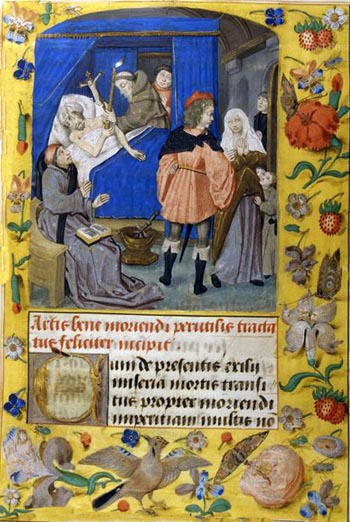 Artis bene moriendi perutilis tracta
tus feliciter incipit
Cum de presentis exilij
miseria mortis transi
tus propter moriendi
imperitiam multis no